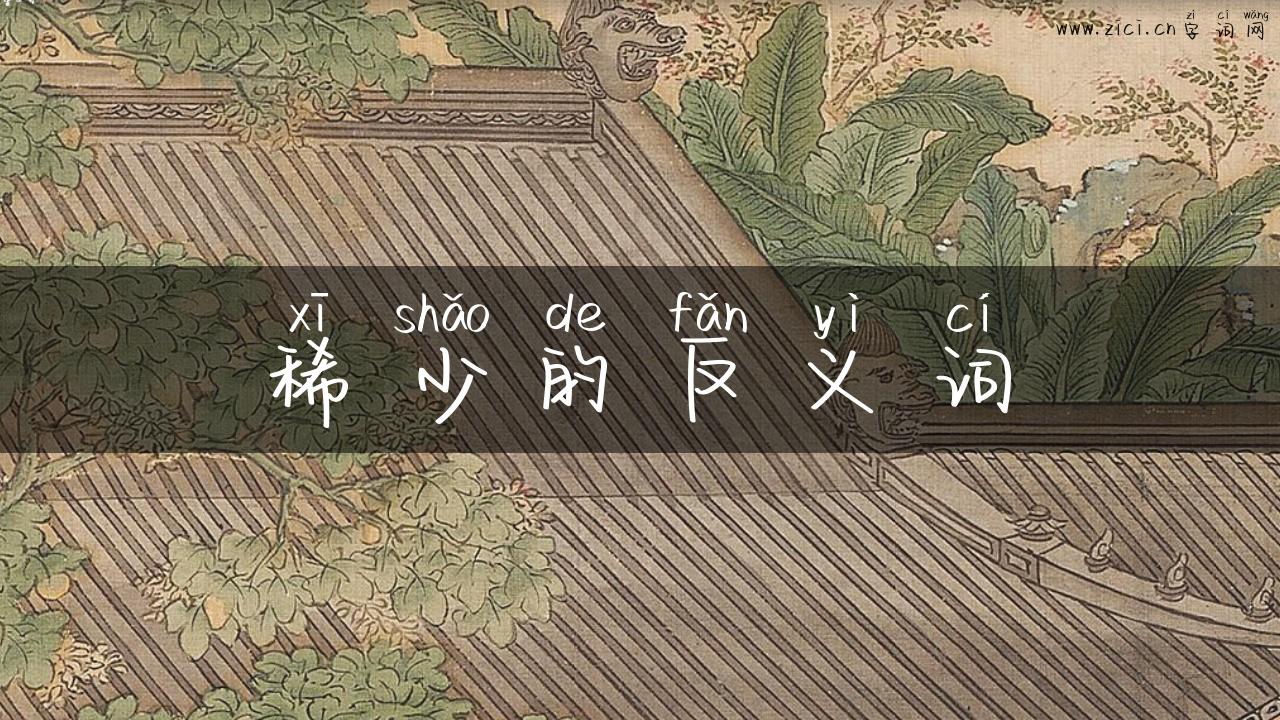 zì cí wǎng
www.zici.cn 字词网
xī shǎo de fǎn yì cí
稀少的反义词